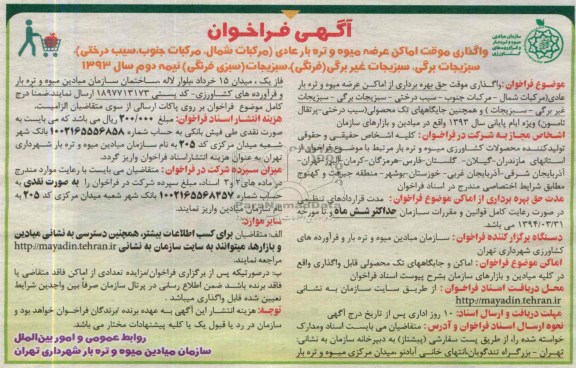 آگهی فراخوان
سازمان میادین
میوه و تره بار
و فرآورده های
کشاورزی
واگذاری موقت اماکن عرضه میوه و تره بار عادی (مرکبات شمال، مرکبات جنوب،سیب درختی)،
سبزیجات برگی، سبزیجات غیر برگی(فرنگی)،سبزیجات(سبزی فرنگی) نیمه دوم سال ۱۳۹۳
موضوع فراخوان:واگذاری موقت حق بهره برداری از اماکن عرضه میوه و تره بار
عادی(مرکبات شمال - مرکبات جنوب - سیب درختی - سبزیجات برگی - سبزیجات
غیر برگی - سبزیجات ) و همچنین جایگاههای تک محصولی(سیب درختی-پرتقال
تامسون) ویژه ایام پایانی سال ۱۳۹۳ واقع در میادین و بازارهای سازمان
اشخاص مجاز به شرکت در فراخوان: کلیه اشخاص حقیقی و حقوقی
تولیدکننده محصولات کشاورزی میوه و تره بار مرتبط با موضوع فراخوان از
استانهای مازندران-گیلان- گلستان-فارس-هرمزگان-کرمان-البرز-تهران-
آذربایجان شرقی-آذربایجان غربی-خوزستان-بوشهر- منطقه جیرفت و کهنوج
مطابق شرایط اختصاصی مندرج در اسناد فراخوان
مدت حق بهره برداری از اماکن موضوع فراخوان: مدت قراردادهای تنظیمی
در صورت رعایت کامل قوانین و مقررات سازمان حداکثر شش ماه و تا مورخه
۱۳۹۴/۰۳/۳۱ می باشد.
دستگاه برگزار کننده فراخوان: سازمان میادین میوه و تره بار و فرآورده های
کشاورزی شهرداری تهران
اماکن موضوع فراخوان: اماکن و جایگاههای تک محصولی قابل واگذاری واقع
در کلیه میادین و بازارهای سازمان بشرح پیوست اسناد فراخوان
محل دریافت اسناد فراخوان: از طریق سایت سازمان به نشانی
http://mayadin.tehran.ir
مهلت دریافت و ارسال اسناد: ۱۰ روز اداری پس از تاریخ درج آگهی
نحوه ارسال اسناد فراخوان و آدرس: متقاضیان می بایست اسناد ومدارک
خواسته شده را، از طریق پست سفارشی (پیشتاز) به دبیرخانه سازمان به نشانی:
تهران - بزرگراه تندگویان،انتهای خانی آبادنو ،میدان مرکزی میوه و تره بار
فاز یک ، میدان ۱۵ خرداد ،بلوار لاله ،ساختمان سازمان میادین میوه و تره بار
و فرآورده های کشاورزی- کد پستی ۱۸۹۷۷۱۳۱۷۳ ارسال نمایند،ضمنا درج
کامل موضوع فراخوان بر روی پاکات ارسالی از سوی متقاضیان الزامیست.
هزینه انتشار اسناد فراخوان: مبلغ ۲۰۰/۰۰۰ ریال می باشد که می بایست به
صورت نقدی طی فیش بانکی به حساب شماره ۱۰۰۲۱۶۵۵۵۶۸۵۸ بانک شهر
شعبه میدان مرکزی کد ۲۰۵ به نام سازمان میادین میوه و تره بار شهرداری
تهران به عنوان هزینه انتشاراسناد فراخوان واریز گردد.
میزان سپرده شرکت در فراخوان: متقاضیان می بایست با رعایت موارد مندرج
در ماده های۲و۳ اسناد، مبلغ سپرده شرکت در فراخوان را به صورت نقدی به
حساب شماره ۱۰۰۲۱۶۵۵۶۸۳۵۷ بانک شهر شعبه میدان مرکزی کد ۲۰۵ به
نام سازمان میادین واریز نمایند.
سایر موارد:
الف: متقاضیان برای کسب اطلاعات بیشتر، همچنین دسترسی به نشانی میادین
و بازارها، میتوانند به سایت سازمان به نشانی http://mayadin.tehran.ir
مراجعه نمایند.
ب: درصورتیکه پس از برگزاری فراخوان/مزایده تعدادی از اماکن فاقد متقاضی یا
فاقد برنده باشند ضمن اطلاع رسانی در پرتال سازمان صرفاً بین واجدین شرایط
تعیین شده قابل واگذاری میباشد.
توجه: هزینه انتشار این آگهی به عهده برنده /برندگان فراخوان خواهد بود و
سازمان در رد یا قبول یک یا کلیه پیشنهادات مختار می باشد.
روابط عمومی و امور بین‌الملل
سازمان میادین میوه و تره بار شهرداری تهران